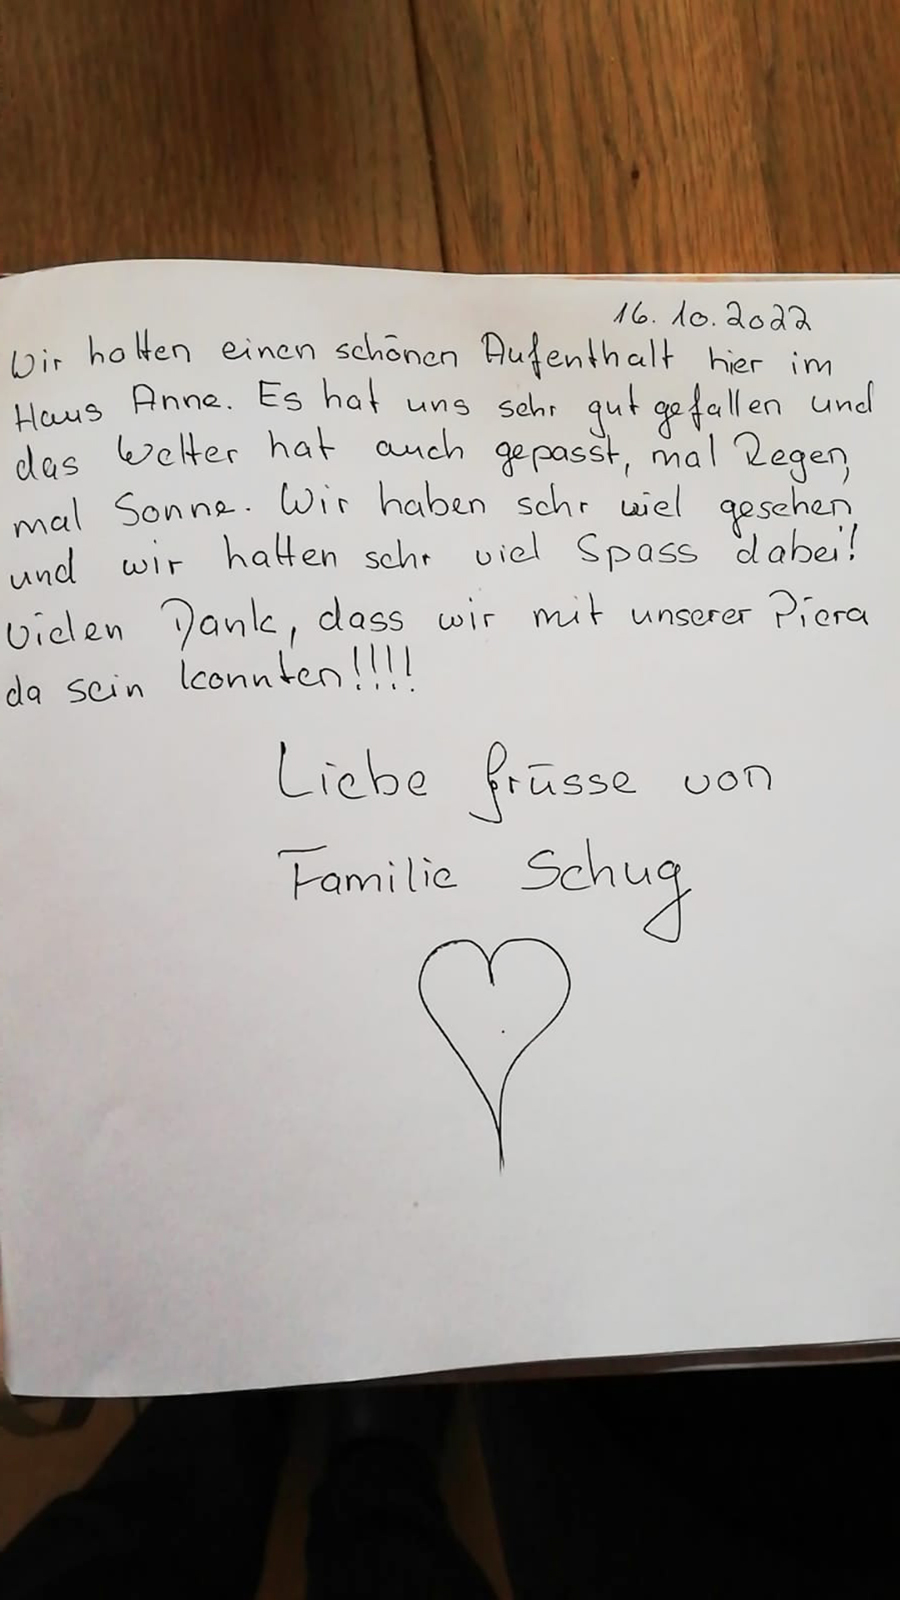 16.10.2022
Wir hatten einen schönen Aufenthalt hier im
Haus Anne. Es hat uns sehr gut gefallen und
das Wetter hat auch gepasst, mal Regen,
mal Sonne. Wir haben sehr viel gesehen
und wir hatten sehr viel Spass dabei!
Vielen Dank, dass wir mit unserer Piera
da sein konnten!!!!
Liebe Grüsse von
Familie Schug